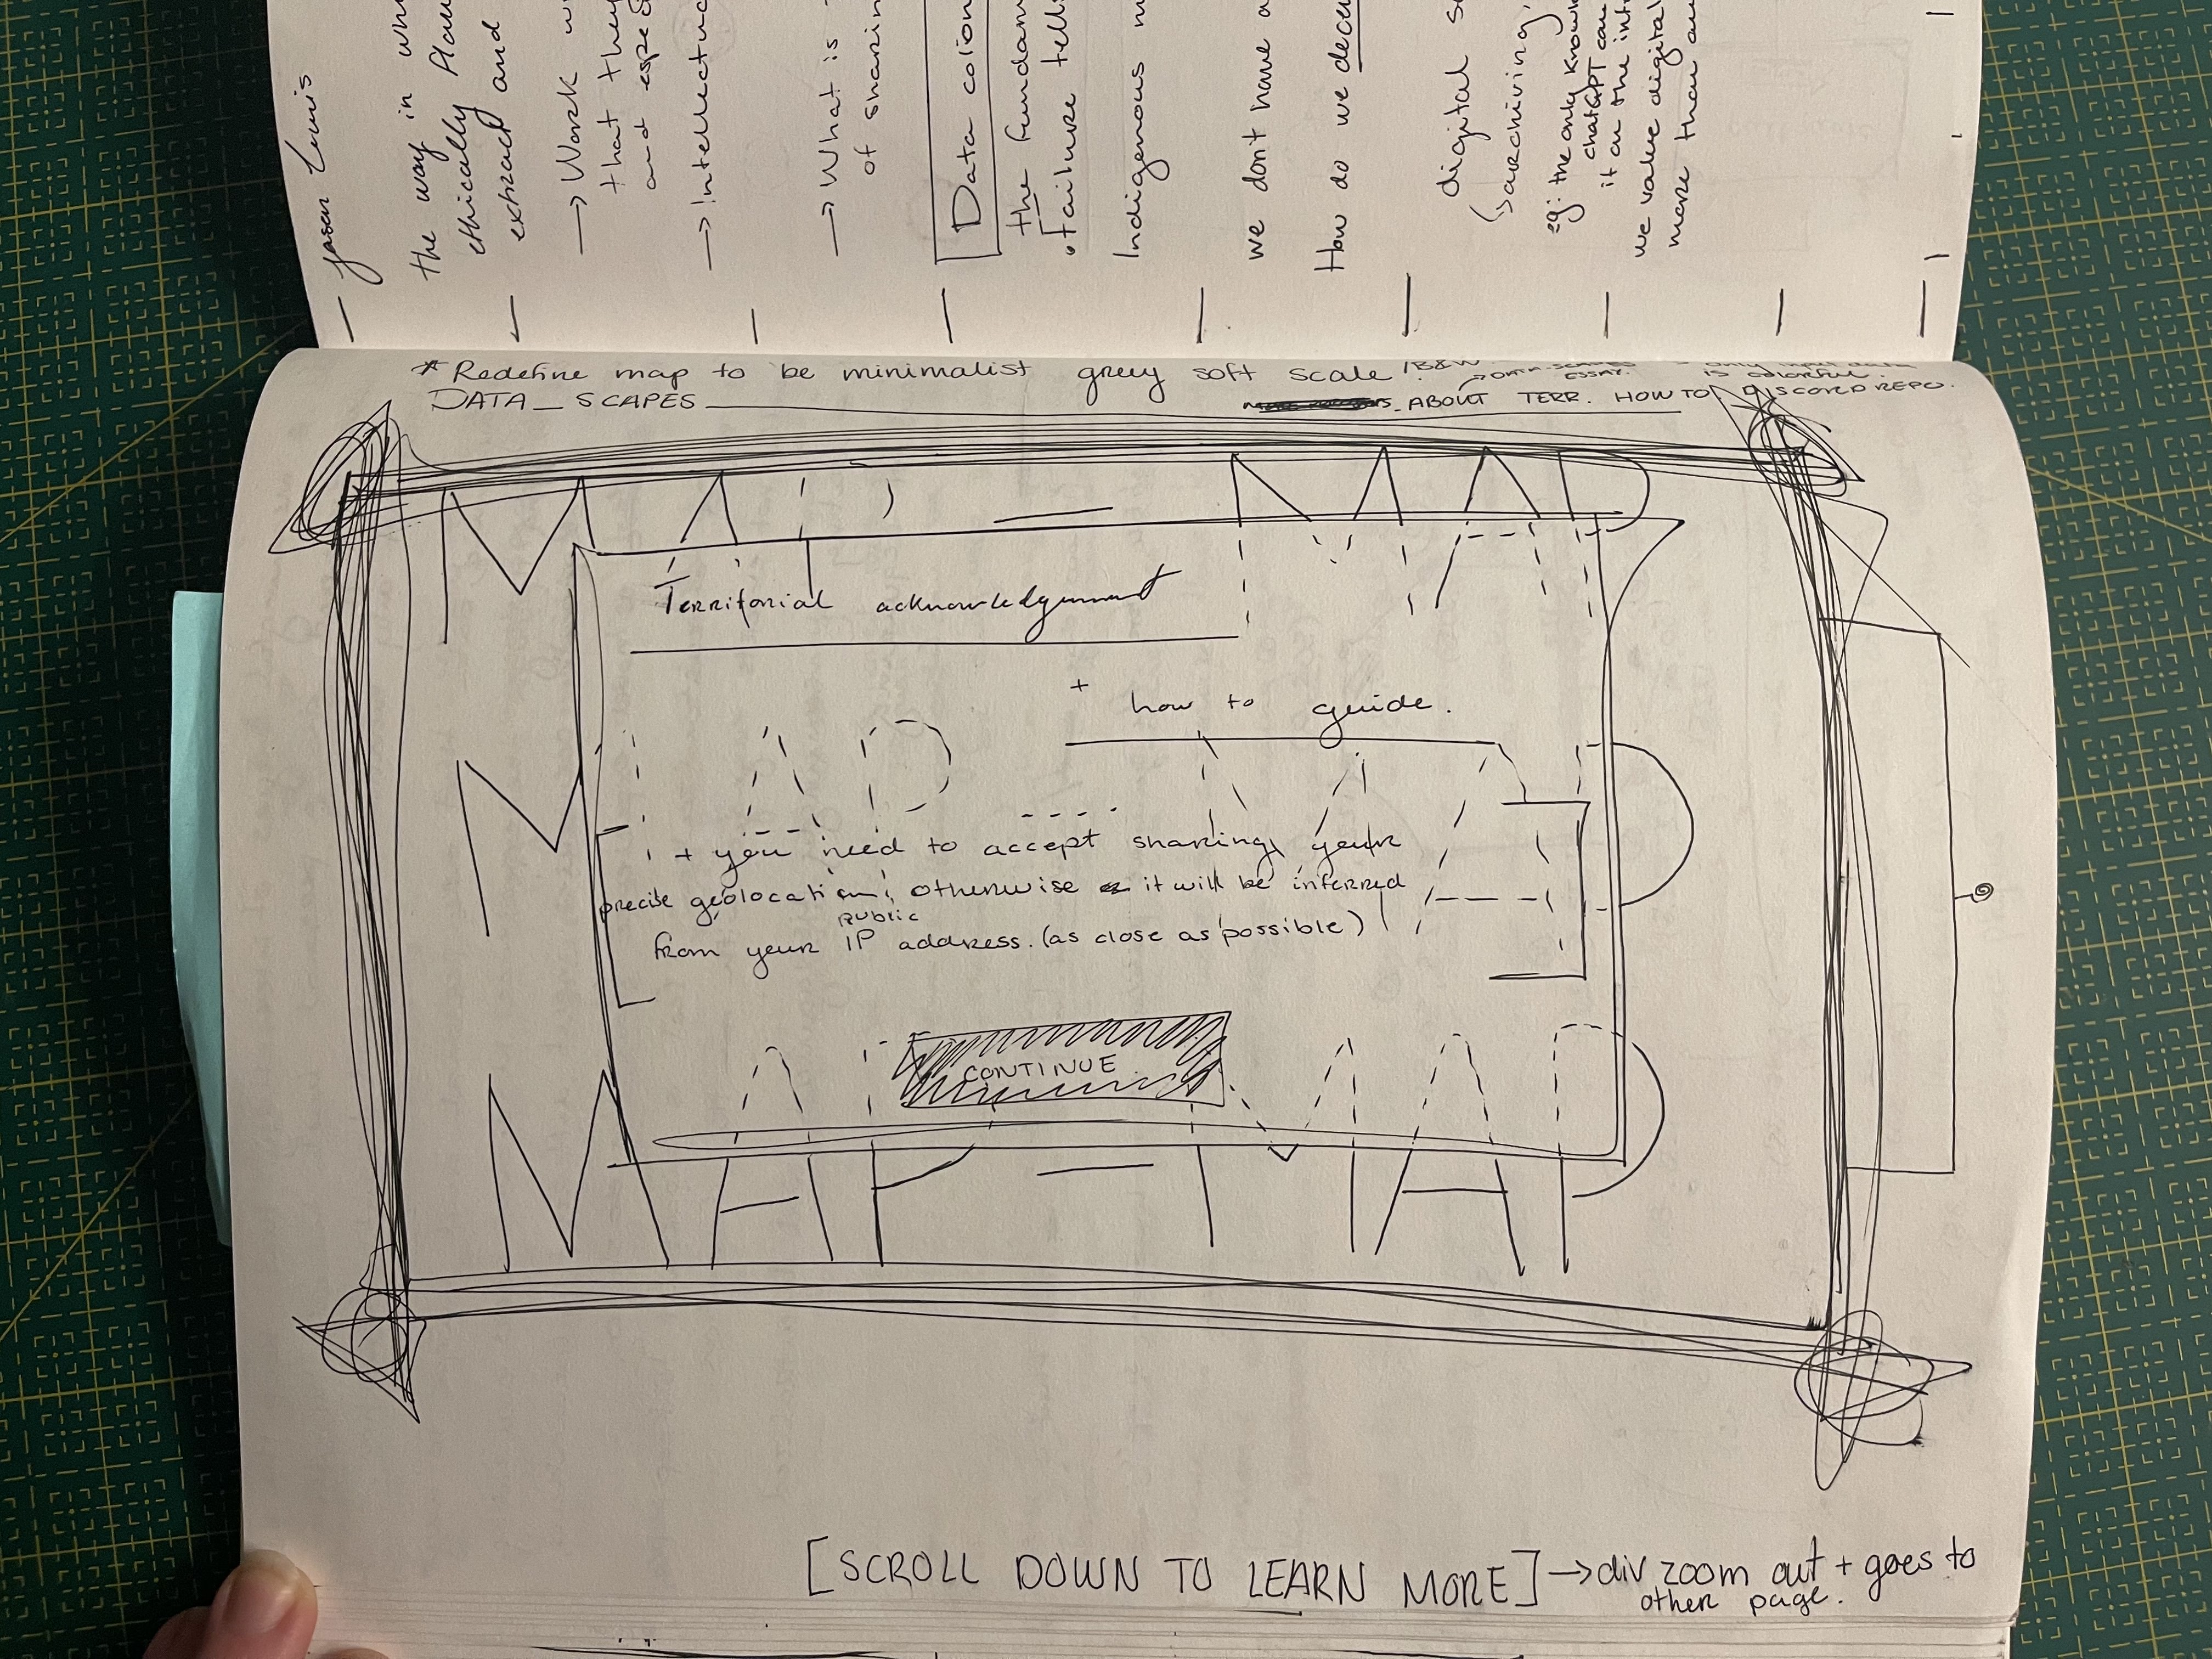 Jason Lewis
the way in
ethically
extract and
→ Work
that they
and
→ Intellectual
→ What is
of sharing
Data
the fundam
• failure tells
Indigenous
we don't have a
How do we
digital
↳ archiving,
eg: the only know
chatGPT can
it on the int
we value digital
more than
* Redefine map to be minimalist grey soft scale / B&W
ESSAY.
is colorful.
DATA_SCAPES ABOUT TERR. HOW TO DISCORD REPO.
MAP – MAP
Territorial acknowledgement
+ how to guide.
MAP – MAP
+ you need to accept sharing your
precise geolocation, otherwise it will be inferred
from your public IP address. (as close as possible)
CONTINUE
MAP – MAP
[SCROLL DOWN TO LEARN MORE] → div zoom out + goes to
other page.